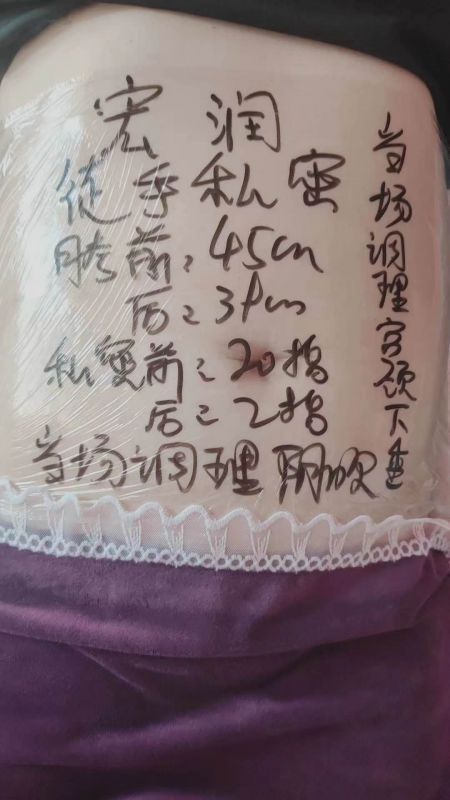 宏 润
徒手私密
胯前:45cm
后:
私密前:20指
后:2指
当场调理阴吹
当场调理宫颈下垂